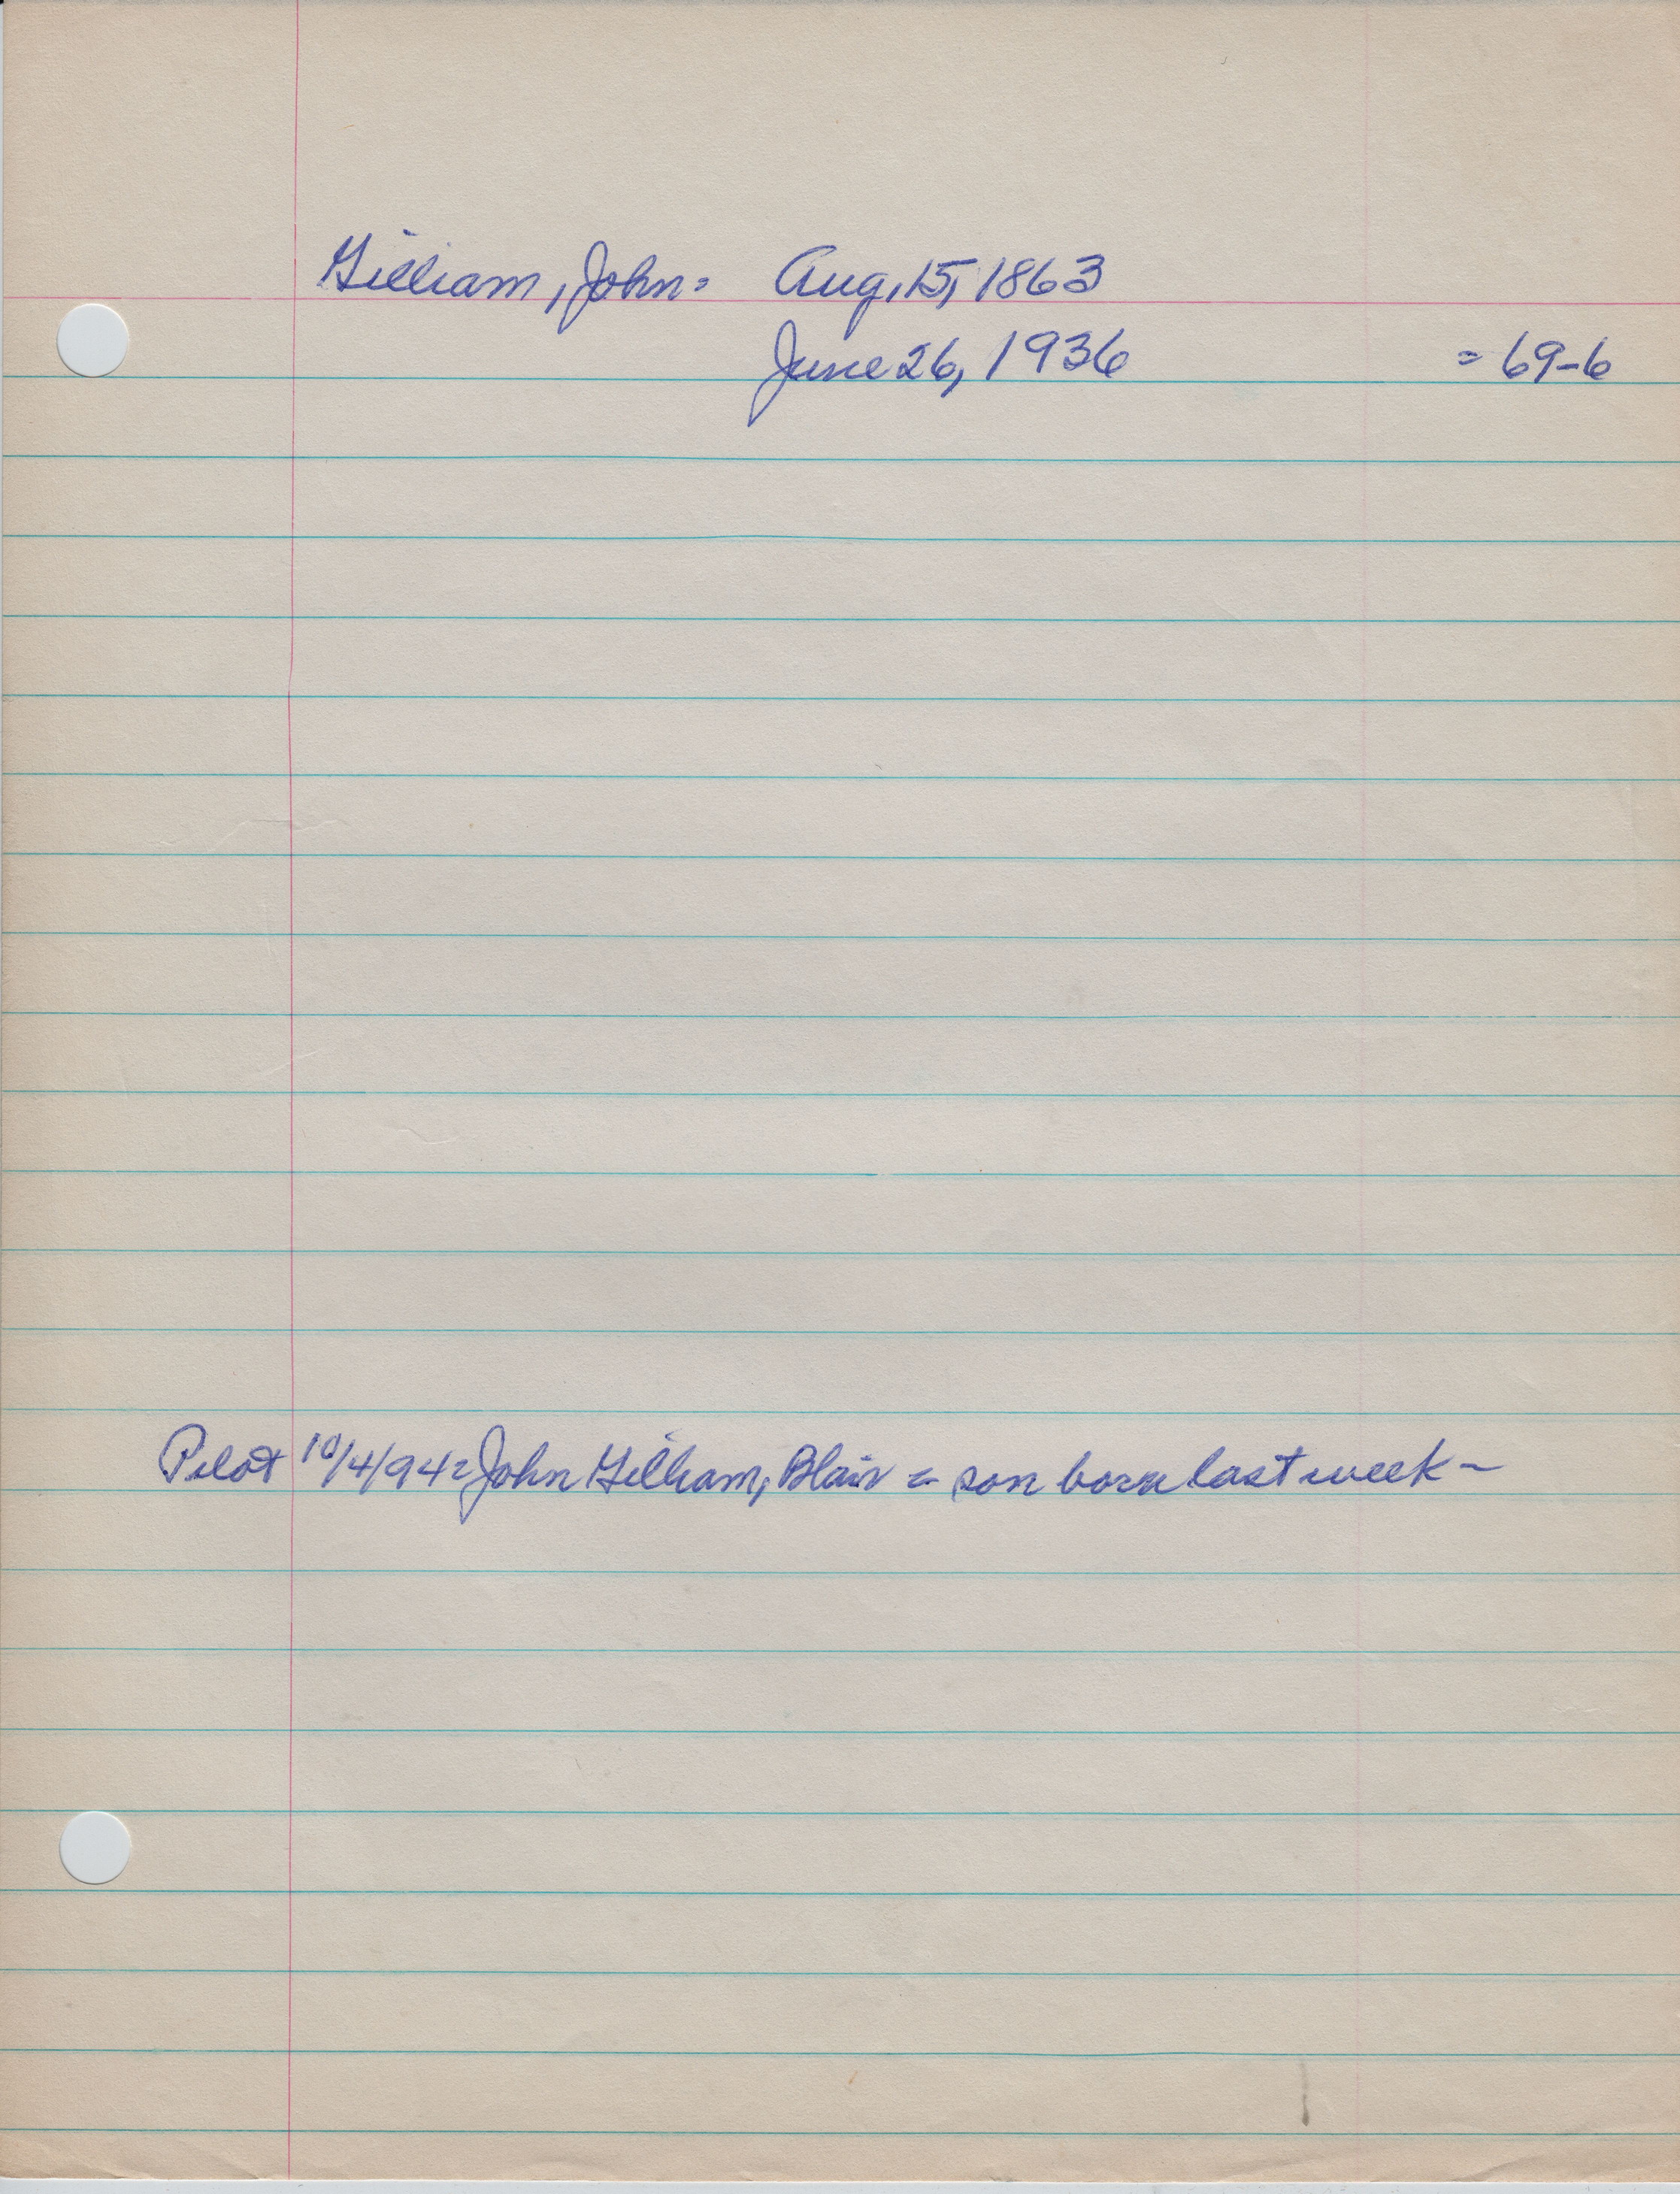 Gilliam, John = Aug, 15, 1863
June 26, 1936 = 69-6
Pilot 10/4/94 = John Gilliam, Blair = son born last week -